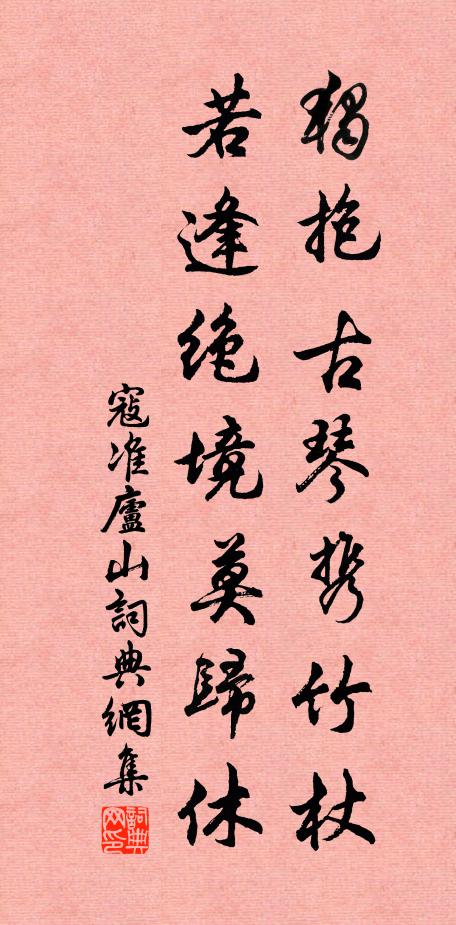 獨抱古琴携竹杖
若逢絶境莫歸休
寇准廬山詞典網集
詞典网印